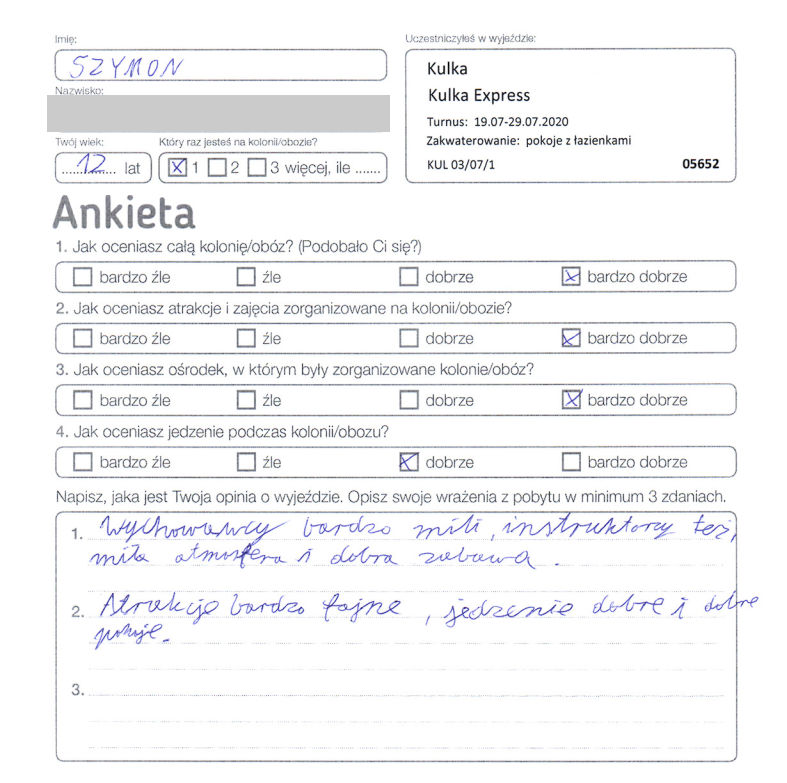 Imię:
SZYMON
Nazwisko:
Twój wiek:
12 lat
Który raz jesteś na kolonii/obozie?
1 2 3 więcej, ile .......
Uczestniczyłeś w wyjeździe:
Kulka
Kulka Express
Turnus: 19.07-29.07.2020
Zakwaterowanie: pokoje z łazienkami
KUL 03/07/1 05652
Ankieta
1. Jak oceniasz całą kolonię/obóz? (Podobało Ci się?)
bardzo źle źle dobrze bardzo dobrze
2. Jak oceniasz atrakcje i zajęcia zorganizowane na kolonii/obozie?
bardzo źle źle dobrze bardzo dobrze
3. Jak oceniasz ośrodek, w którym były zorganizowane kolonie/obóz?
bardzo źle źle dobrze bardzo dobrze
4. Jak oceniasz jedzenie podczas kolonii/obozu?
bardzo źle źle dobrze bardzo dobrze
Napisz, jaka jest Twoja opinia o wyjeździe. Opisz swoje wrażenia z pobytu w minimum 3 zdaniach.
1. Wychowawcy bardzo mili, instruktorzy też,
miła atmosfera i dobra zabawa.
2. Atrakcje bardzo fajne, jedzenie dobre i dobre
pokoje.
3.